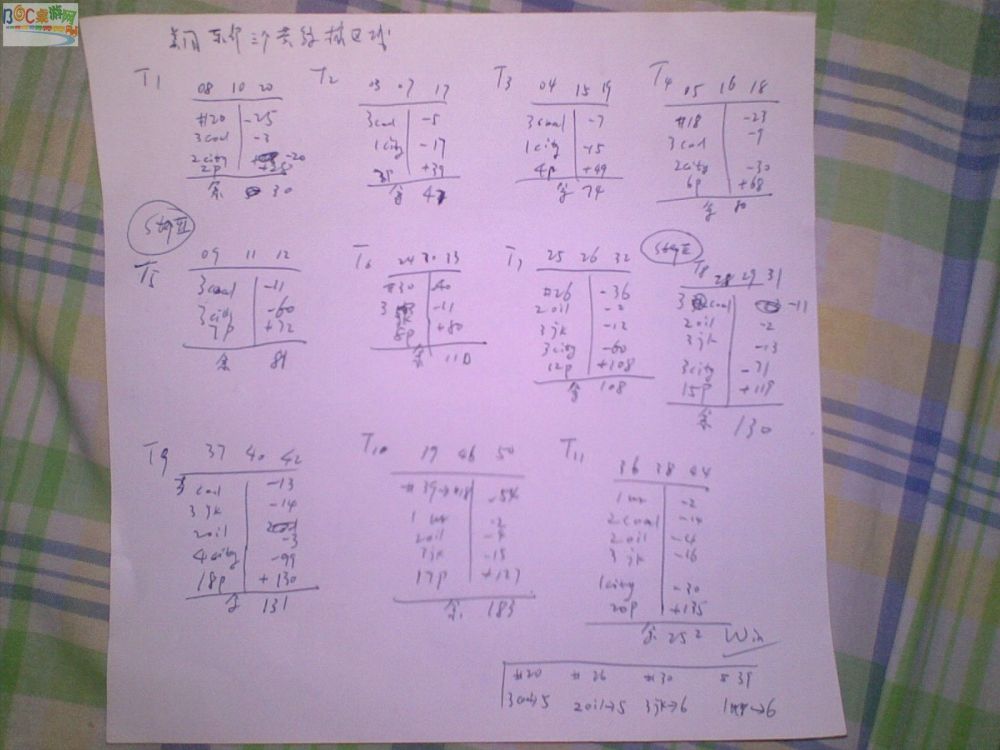 BGC桌游网
T1
08 10 20
#20 -25
3coal -3
2city -20
2p
余 30
T2
03 07 17
3coal -5
1city -17
3p +39
余 47
T3
04 15 19
3coal -7
1city -15
4p +49
余 74
T4
05 16 18
#18 -23
3coal -9
2city -30
6p +68
余 80
Step II
T5
09 11 12
3coal -11
3city -60
7p +72
余 81
T6
24 30 33
#30 40
3 jk -11
8p +80
余 110
T7
25 26 32
#26 -36
2oil -2
3jk -12
3city -60
12p +108
余 108
T8
28 29 31
3 coal -11
2oil -2
3jk -13
3city -71
15p +119
余 130
T9
37 40 42
3 coal -13
3jk -14
2oil -3
4city -99
18p +130
余 131
T10
19 46 50
#39→#18 -54
1 -2
2oil -4
3jk -15
17p +127
余 183
T11
36 38 44
1 -2
2coal -14
2oil -4
3jk -16
1city -30
20p +135
余 252 Win
#20 #26 #30 #39
3coal→5 2oil→5 3jk→6 →6